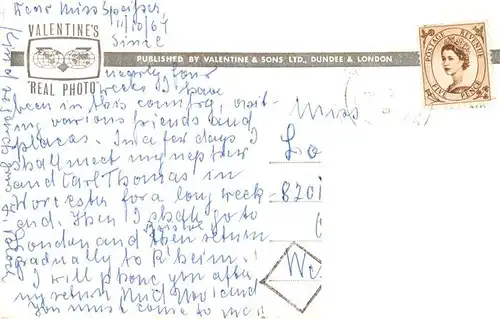 Dear Miss Speiser,
11/10/64
VALENTINE'S
"REAL PHOTO"
Since
PUBLISHED BY VALENTINE & SONS LTD., DUNDEE & LONDON
POSTAGE REVENUE
FIVE PENCE
nearly four
weeks I have
been in this country, visit-
ing various friends and
places. In a few days I
shall meet my nephew
and Carl Thomas in
Worcester for a long week-
end. Then I shall go to
London and then return
gradually to
I will phone you after
my return and you
you must come to me!!
Miss
Lo
8201
We